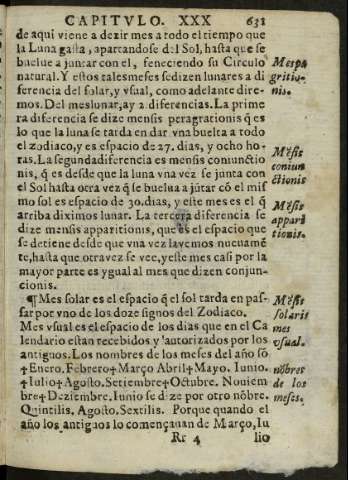 CAPITVLO. XXX 631
de aqui viene a dezir mes a todo el tiempo que
la Luna gasta, apartandose del Sol, hasta que se
buelue a juntar con el, feneciendo su Circulo
natural. Y estos tales meses se dizen lunares a di
ferencia del solar, y vsual, como adelante dire-
mos. Del mes lunar, ay 2 diferencias. La prime
ra diferencia se dize mensis peragrationis q̃ es
lo que la luna se tarda en dar vna buelta a todo
el zodiaco, y es espacio de 27. dias, y ocho ho-
ras. La segunda diferencia es mensis coniunctio
nis, q̃ es desde que la luna vna vez se junta con
el Sol hasta otra vez q̃ se buelua a jútar cõ el mis
mo sol es espacio de 30. dias, y este mes es el q̃
arriba diximos lunar. La tercera diferencia se
dize mensis apparitionis, que es el espacio que
se detiene desde que vna vez la vemos nucuamẽ
te, hasta que otra vez se vee, y este mes casi por la
mayor parte es ygual al mes que dizen conjun-
cionis.
¶ Mes solar es el espacio q̃ el sol tarda en pas-
sar por vno de los doze signos del Zodiaco.
Mes vsual es el espacio de los dias que en el Ca
lendario estan recebidos y autorizados por los
antiguos. Los nombres de los meses del año sõ
✝Enero. Febrero✝Março Abril✝Mayo. Iunio.
✝Iulio✝Agosto. Setiembre✝Octubre. Nouiem
bre✝Deziembre. Iunio se dize por otro nõbre.
Quintilis. Agosto. Sextilis. Porque quando el
año los antiguos lo començauan de Março, Iu
Rr 4 lio
Mes pa
gritio-
nis.
Mẽsis
coniun
ctionis
Mẽsis
appari
tionis.
Mẽsis
solaris
mes
vsual.
nõbres
de los
meses.